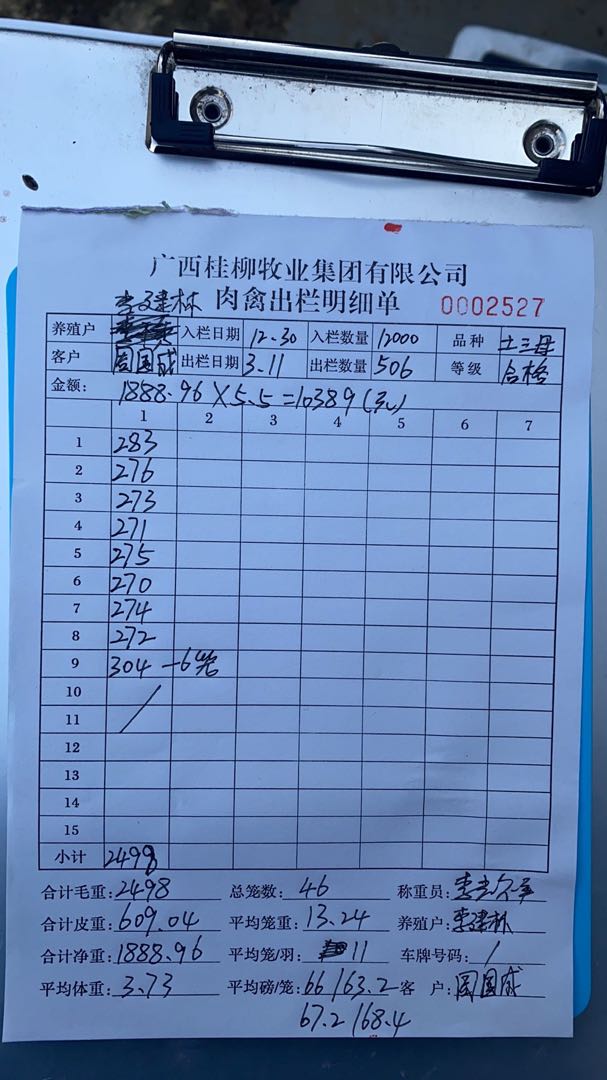 广西桂柳牧业集团有限公司
李建林 肉禽出栏明细单 0002527
养殖户 入栏日期 12.30 入栏数量 12000 品种 土三母
客户 周国成 出栏日期 3.11 出栏数量 506 等级 合格
金额: 1888.96×5.5=10389(元)
1 2 3 4 5 6 7
1 283
2 276
3 273
4 271
5 275
6 270
7 274
8 272
9 304 -6笼
10
11 /
12
13
14
15
小计 2498
合计毛重: 2498 总笼数: 46 称重员:
合计皮重: 609.04 平均笼重: 13.24 养殖户: 李建林
合计净重: 1888.96 平均笼/羽: 11 车牌号码: /
平均体重: 3.73 平均磅/笼: 66/63.2 客 户: 周国成
67.2/68.4